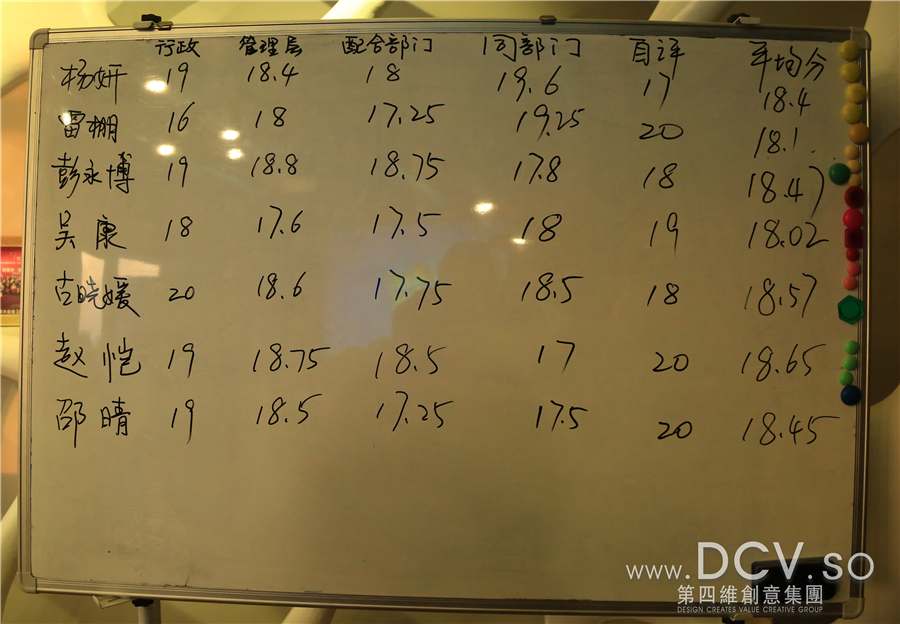 行政 管理层 配合部门 同部门 自评 平均分
杨妍 19 18.4 18 19.6 17 18.4
雷栩 16 18 17.25 19.25 20 18.1
彭永博 19 18.8 18.75 17.8 18 18.47
吴康 18 17.6 17.5 18 19 18.02
古晓媛 20 18.6 17.75 18.5 18 18.57
赵恺 19 18.75 18.5 17 20 18.65
邵晴 19 18.5 17.25 17.5 20 18.45
www.DCV.so
第四維創意集團
DESIGN CREATES VALUE CREATIVE GROUP